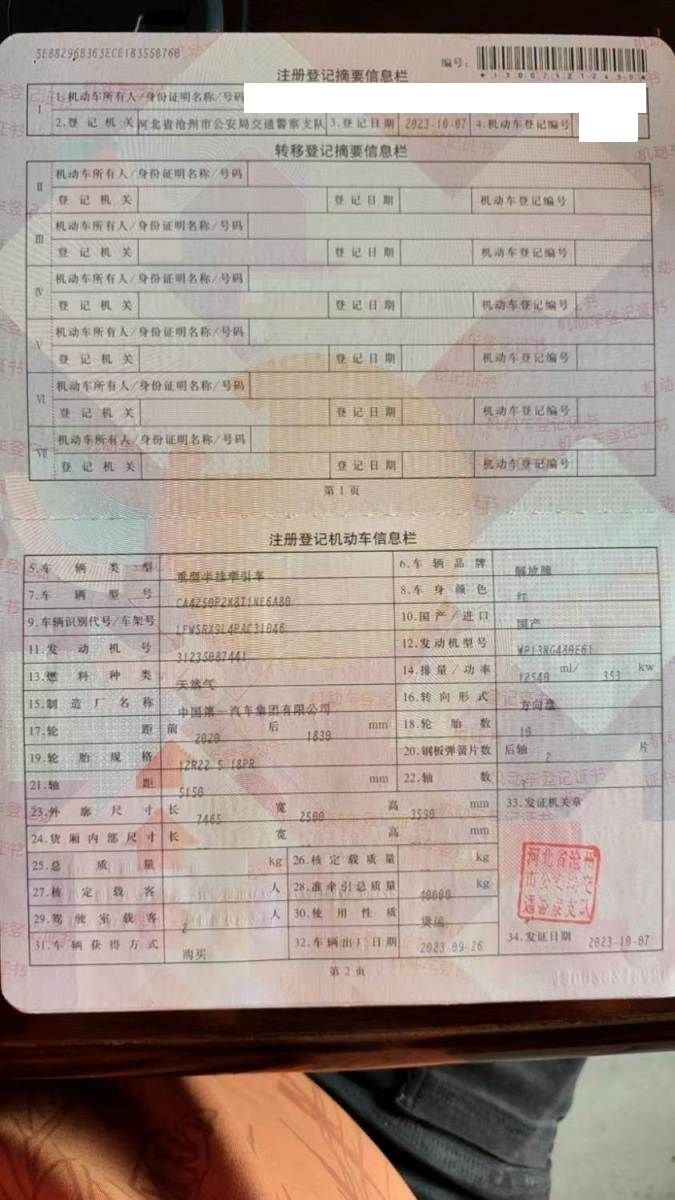 5E882968363ECE1835587
编号:
注册登记摘要信息栏
I 1.机动车所有人/身份证明名称/号码
2.登记机关 河北省沧州市公安局交通警察支队 3.登记日期 2023-10-07 4.机动车登记编号
转移登记摘要信息栏
II 机动车所有人/身份证明名称/号码
登记机关 登记日期 机动车登记编号
III 机动车所有人/身份证明名称/号码
登记机关 登记日期 机动车登记编号
IV 机动车所有人/身份证明名称/号码
登记机关 登记日期 机动车登记编号
V 机动车所有人/身份证明名称/号码
登记机关 登记日期 机动车登记编号
VI 机动车所有人/身份证明名称/号码
登记机关 登记日期 机动车登记编号
VII 机动车所有人/身份证明名称/号码
登记机关 登记日期 机动车登记编号
第1页
注册登记机动车信息栏
5.车辆类型 重型半挂牵引车 6.车辆品牌 解放牌
7.车辆型号 CA4250P2K8T1NE6A80 8.车身颜色 红
9.车辆识别代号/车架号 LFWSRXSL4PAC31046 10.国产/进口 国产
11.发动机号 31235087441 12.发动机型号 WP13NG480E61
13.燃料种类 天然气 14.排量/功率 12540 ml/ 353 kw
15.制造厂名称 中国第一汽车集团有限公司 16.转向形式 方向盘
17.轮距 前 2020 后 1830 mm 18.轮胎数 10
19.轮胎规格 12R22.5 18PR 20.钢板弹簧片数 后轴 2 片
21.轴距 5150 mm 22.轴数
23.外廓尺寸 长 7465 宽 2500 高 3590 mm 33.发证机关章
24.货厢内部尺寸 长 宽 高 mm
25.总质量 kg 26.核定载质量 kg
27.核定载客 人 28.准牵引总质量 40000 kg
29.驾驶室载客 2 人 30.使用性质 货运
31.车辆获得方式 购买 32.车辆出厂日期 2023-09-26 34.发证日期 2023-10-07
河北省沧州
市公安局交
通警察支队
第2页